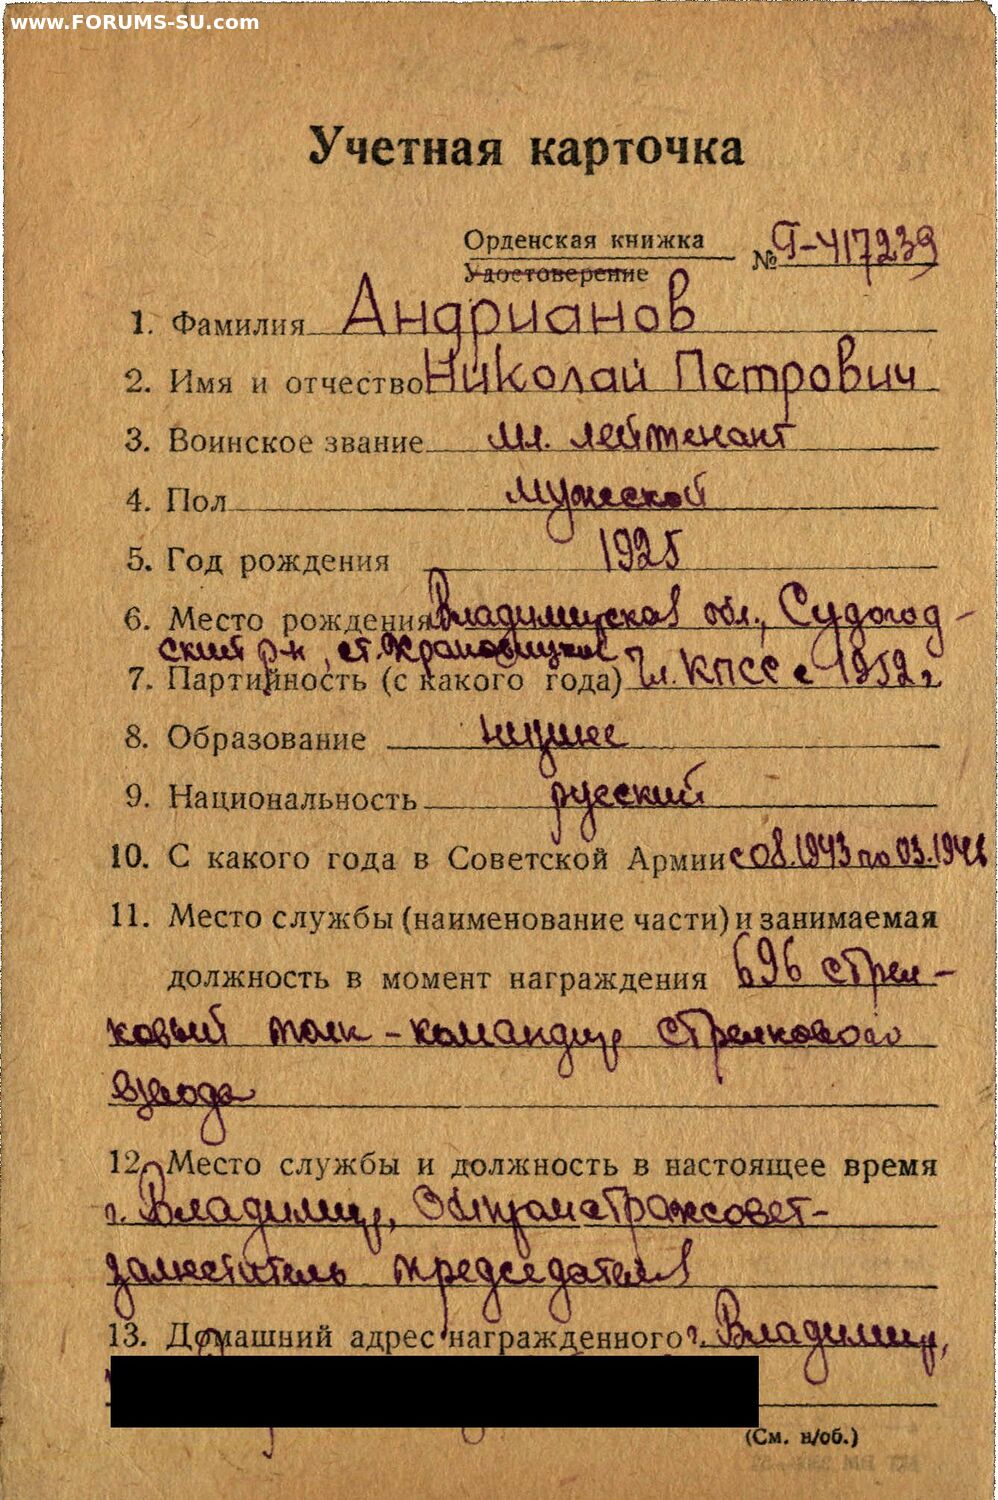 www.FORUMS-SU.com
Учетная карточка
Орденская книжка
Удостоверение
№ Г-417239
1. Фамилия Андрианов
2. Имя и отчество Николай Петрович
3. Воинское звание мл. лейтенант
4. Пол мужской
5. Год рождения 1925
6. Место рождения Владимирская обл., Судогод-
ский р-н, ст.
7. Партийность (с какого года) Чл. КПСС с 1952 г
8. Образование низшее
9. Национальность русский
10. С какого года в Советской Армии с 08.1943 по
11. Место службы (наименование части) и занимаемая
должность в момент награждения 696 стрел-
ковый полк - командир стрелкового
взвода
12. Место службы и должность в настоящее время
г. Владимир, Облпромстрахсовет-
заместитель председателя
13. Домашний адрес награжденного г. Владимир,
(См. н/об.)